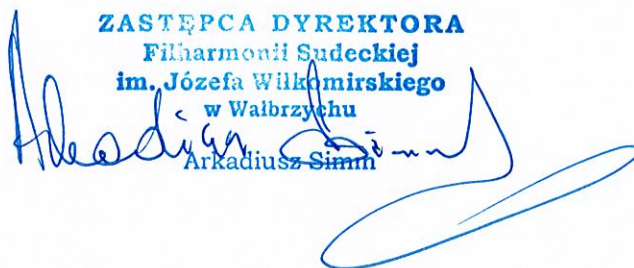 ZASTĘPCA DYREKTORA
Filharmonii Sudeckiej
im. Józefa Wiłkomirskiego
w Wałbrzychu
Arkadiusz Simm